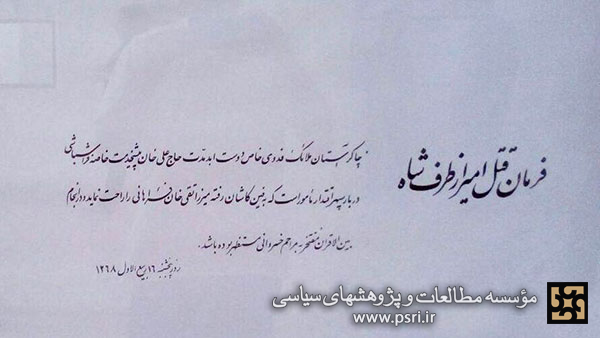 فرمان قتل امیر از طرف شاه
چاکر آستان ملائک پاسبان فدوی خاص دولت ابد مدت حاج علی خان پیشخدمت خاصه فراشباشی
دربار سپهر اقتدار مأمور است که به فین کاشان رفته میرزا تقی خان فراهانی را راحت نماید و در انجام
بین الاقران مفتخر به مراحم خسروانی مستظهر بوده باشد.
روز پنجشنبه ۱۶ ربیع الاول ۱۲۶۸
مؤسسه مطالعات و پژوهشهای سیاسی
www.psri.ir